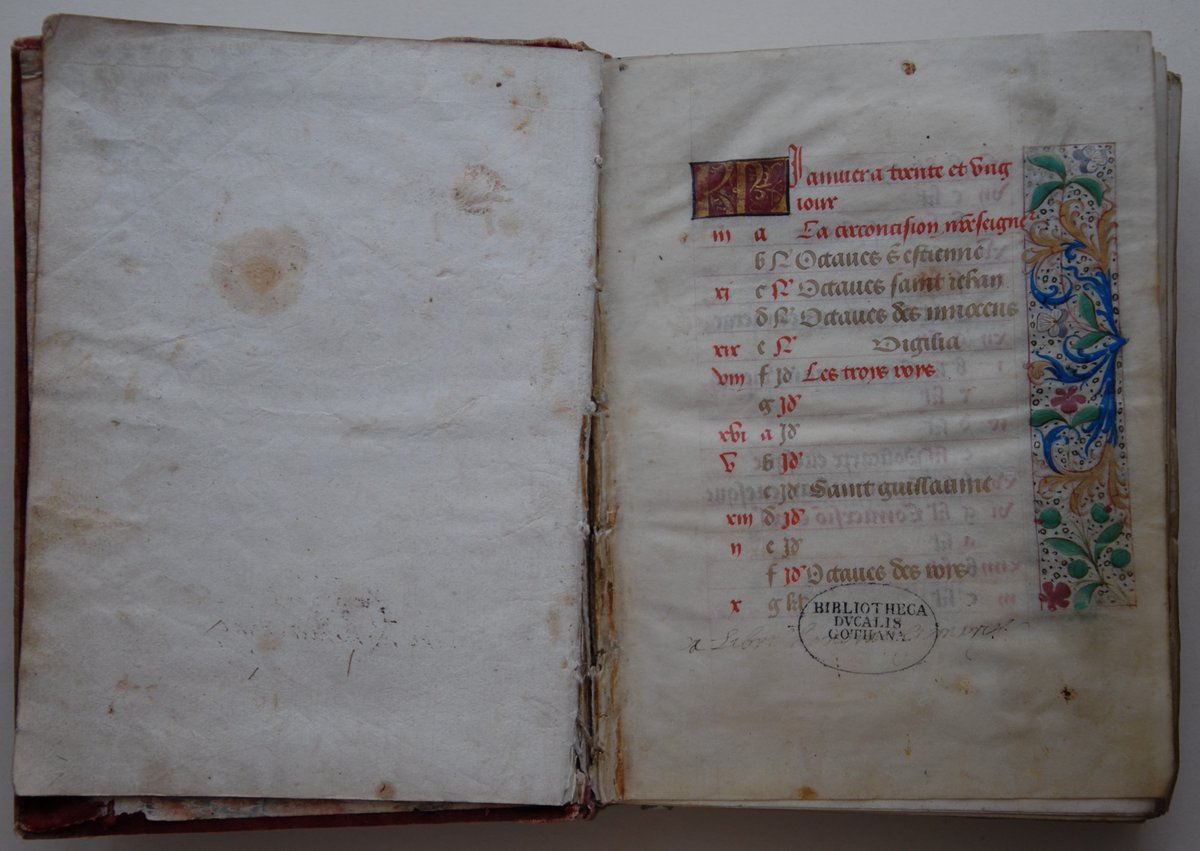 KL Januier a trente et vng
iour
iii a La circoncision nrẽ seigneʳ
b N Octaues S estienne
xi c N Octaues saint iehan
d N Octaues des innocens
xix e N Vigilia
viii f id Les troys roys
g id
xvi a id
v b id
c id Saint guillaume
xiii d id
ii e id
f id Octaues des roys
x g kl
BIBLIOTHECA
DVCALIS
GOTHANA